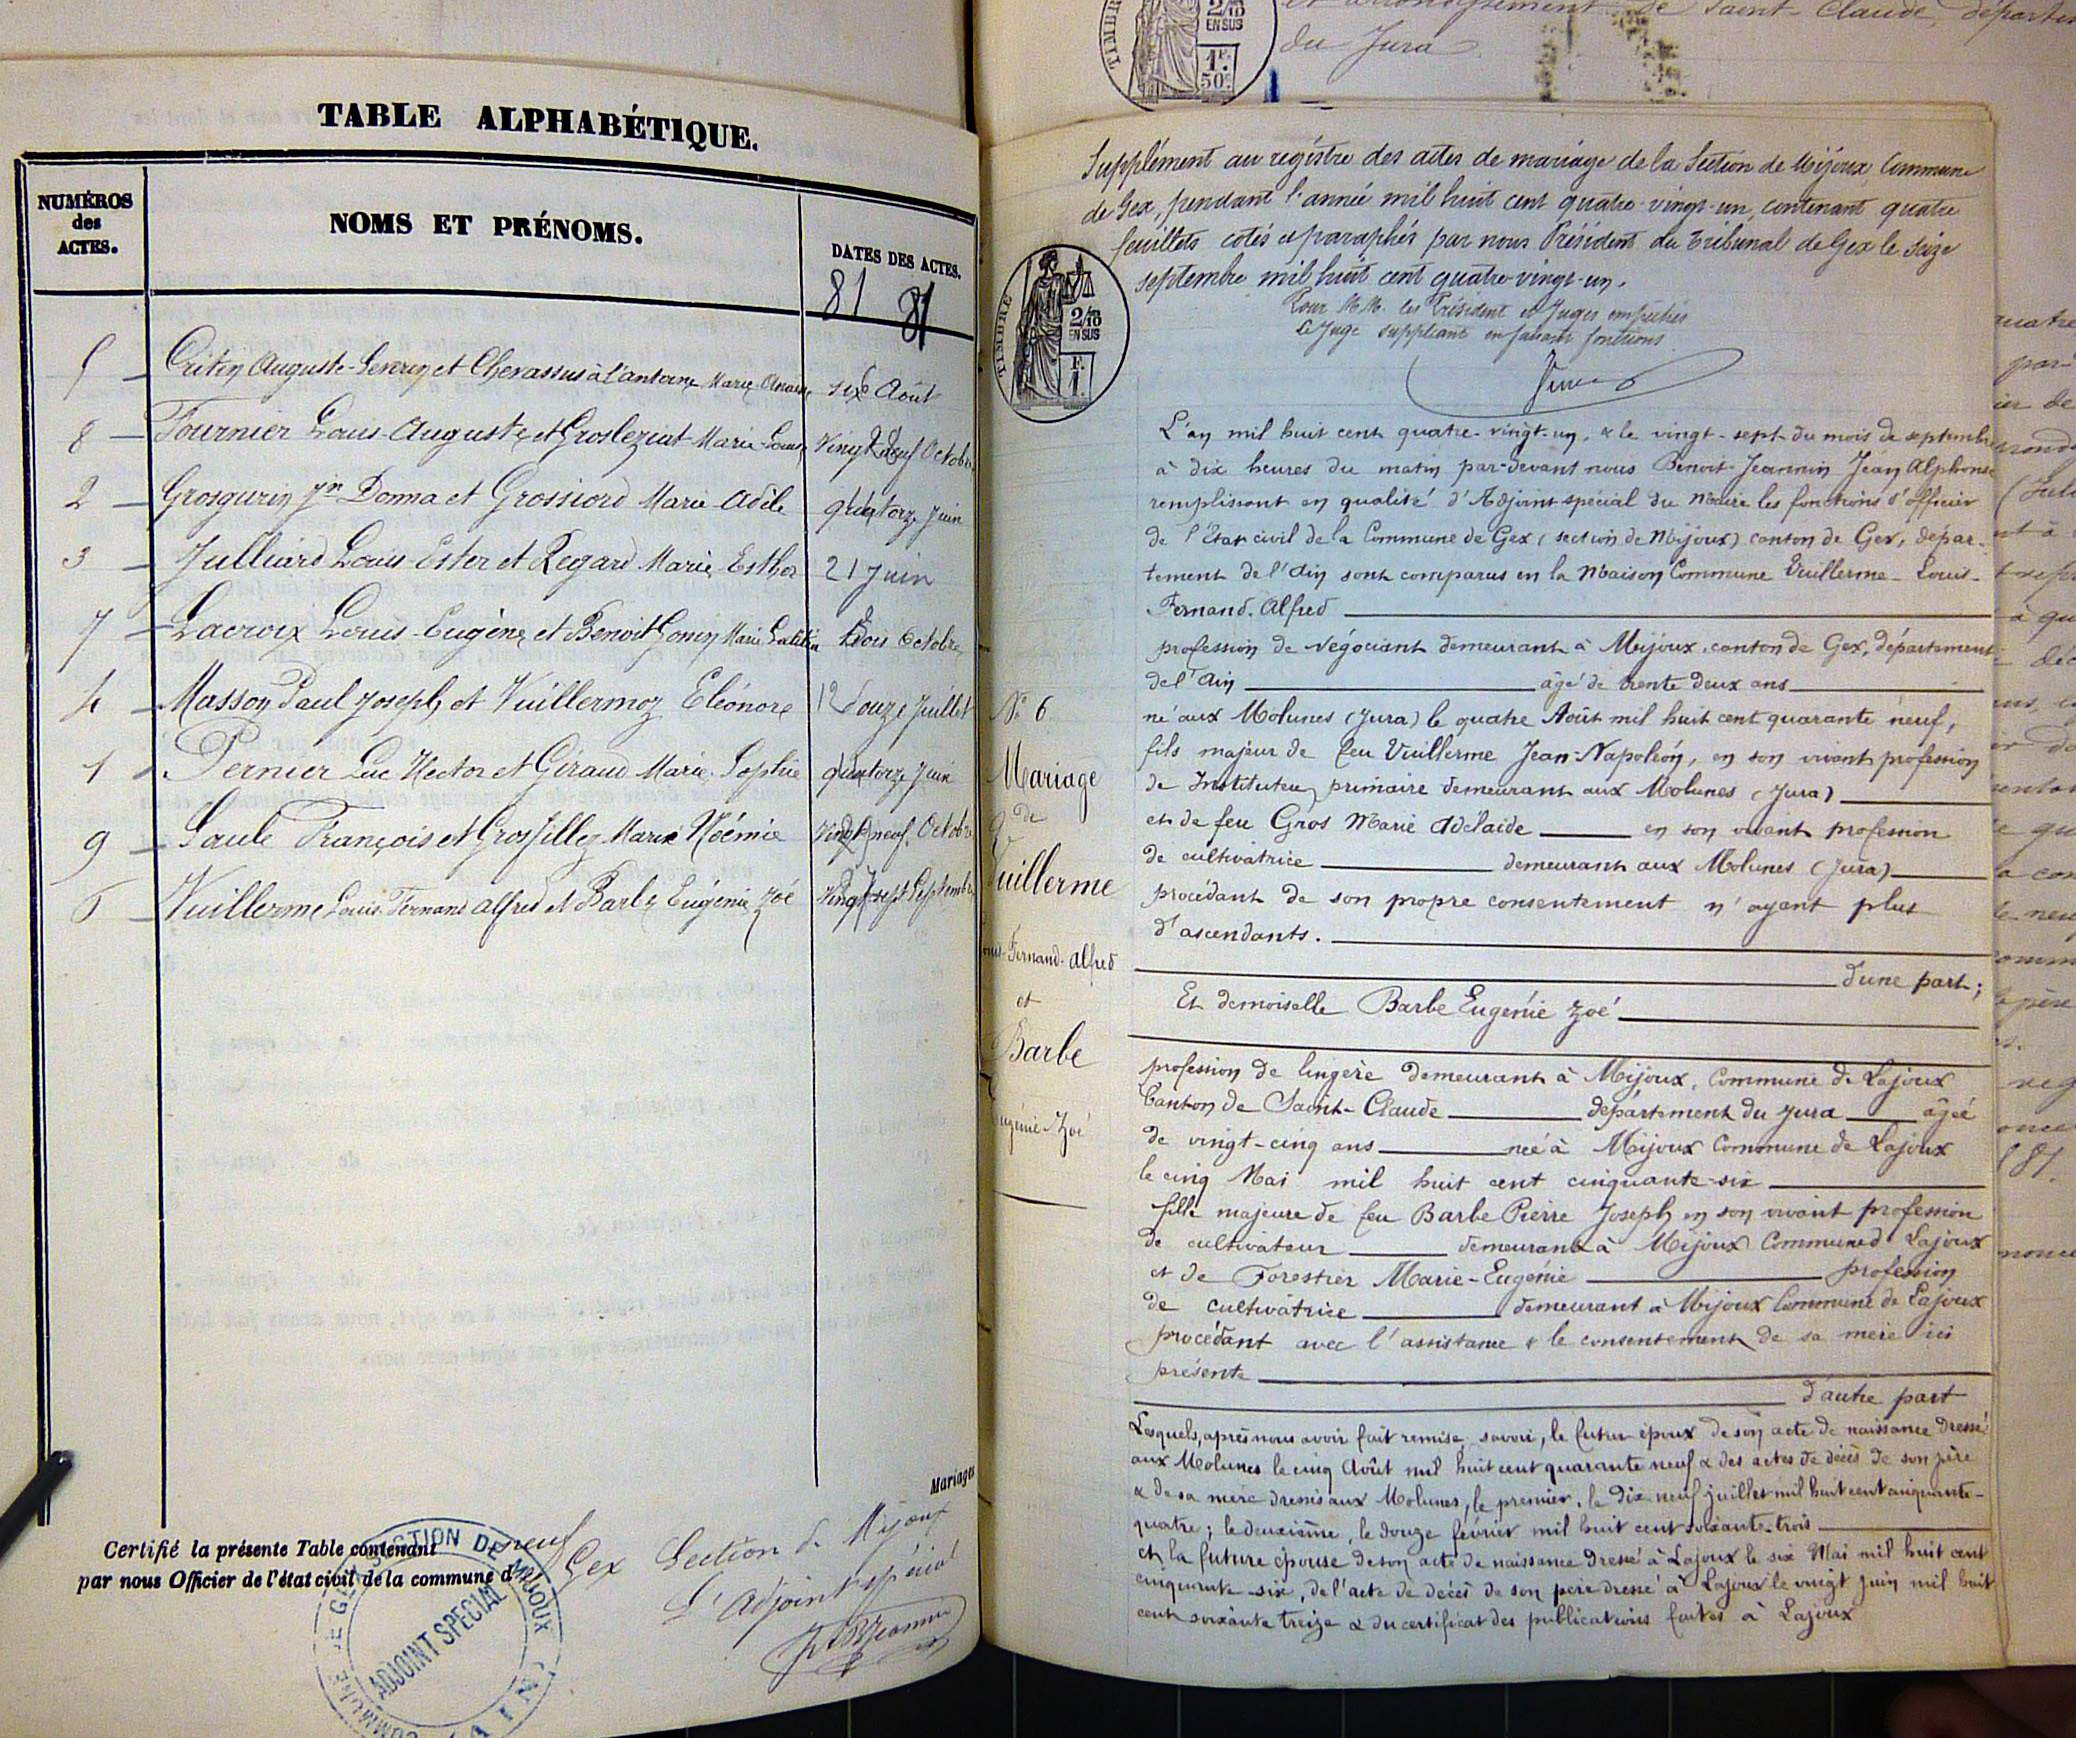 TABLE ALPHABÉTIQUE.
NUMÉROS
des
ACTES.
NOMS ET PRÉNOMS.
DATES DES ACTES.
81 81
5 Critin Auguste-Severin et Chevassus à l'antoine Marie six Août
8 Fournier Louis-Auguste et Grosleziat Marie-Louise Vingt neuf Octobre
2 Grosgurin Jn Donna et Grossiord Marie Adèle quatorze juin
3 Julliard Louis-Ester et Regard Marie Esther 21 juin
7 Lacroix Louis-Eugène et Benoit Gonin Marie trois Octobre
4 Masson Paul Joseph et Vuillermoz Eléonore 12 douze Juillet
1 Pernier Luc Hector et Giraud Marie Sophie quatorze Juin
9 Saule François et Grosfilley Marie Noémie Vingt neuf Octobre
6 Vuillerme Louis Fernand Alfred et Barbe Eugénie Zoé Vingt sept Septembre
Mariages
Certifié la présente Table contenant neuf
par nous Officier de l'état civil de la commune d Gex Section de Mijoux
L'Adjoint spécial
COMMUNE DE GEX SECTION DE MIJOUX
ADJOINT SPECIAL
(AIN)
TIMBRE
2/10
EN SUS
1F.
50c.
et arrondissement de Saint-Claude, départem
du Jura
Supplément au registre des actes de mariage de la Section de Mijoux, Commune
de Gex, pendant l'année mil huit cent quatre-vingt-un, contenant quatre
feuillets cotés et paraphés par nous Président du Tribunal de Gex le seize
septembre mil huit cent quatre-vingt-un.
Pour M.M. les Président et Juges empêchés
Le Juge suppléant en faisant fonctions
TIMBRE
2/10
EN SUS
F.
1.
L'an mil huit cent quatre-vingt-un, & le vingt-sept du mois de septembre
à dix heures du matin par-devant nous Benoit-Jeannin Jean Alphonse
remplissant en qualité d'Adjoint spécial du Maire les fonctions d'officier
de l'Etat civil de la Commune de Gex (section de Mijoux) canton de Gex, dépar-
tement de l'Ain sont comparus en la Maison Commune Vuillerme-Louis-
Fernand. Alfred
profession de Négociant demeurant à Mijoux, canton de Gex, département
de l'Ain âgé de trente deux ans
né aux Molunes (Jura) le quatre Août mil huit cent quarante neuf,
fils majeur de feu Vuillerme Jean-Napoléon, en son vivant profession
de Instituteur primaire demeurant aux Molunes (Jura)
et de feu Gros Marie Adélaide en son vivant profession
de cultivatrice demeurant aux Molunes (Jura)
procédant de son propre consentement n'ayant plus
d'ascendants.
d'une part;
Et demoiselle Barbe Eugénie Zoé
profession de lingère demeurant à Mijoux, Commune de Lajoux
Canton de Saint-Claude département du Jura âgée
de vingt-cinq ans née à Mijoux Commune de Lajoux
le cinq Mai mil huit cent cinquante-six
fille majeure de feu Barbe Pierre Joseph en son vivant profession
de cultivateur demeurant à Mijoux Commune d Lajoux
et de Forestier Marie-Eugénie profession
de cultivatrice demeurant à Mijoux Commune de Lajoux
procédant avec l'assistance & le consentement de sa mère ici
présente
d'autre part
Lesquels, après nous avoir fait remise, savoir, le futur époux de son acte de naissance dressé
aux Molunes le cinq Août mil huit cent quarante neuf & des actes de décès de son père
& de sa mère dressés aux Molunes, le premier, le dix neuf juillet mil huit cent cinquante-
quatre; le deuxième, le douze février mil huit cent soixante-trois
et la future épouse de son acte de naissance dressé à Lajoux le six Mai mil huit cent
cinquante-six, de l'acte de décès de son père dressé à Lajoux le vingt juin mil huit
cent soixante treize & du certificat des publications faites à Lajoux
N° 6
Mariage
de
Vuillerme
Louis-Fernand-Alfred
et
Barbe
Eugénie-Zoé